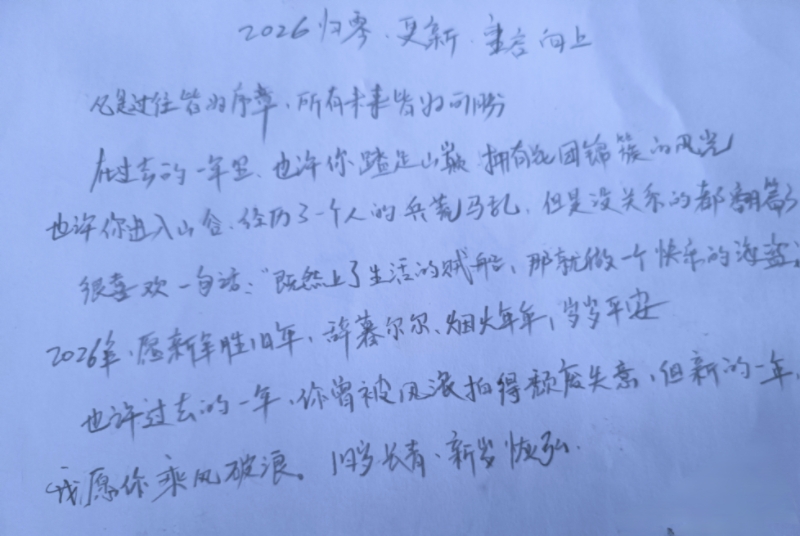 2026归零、更新、重启向上
凡是过往皆为序章、所有未来皆为可盼
在过去的一年里、也许你踏足山巅 拥有花团锦簇的风光
也许你进入山谷、经历了一个人的兵荒马乱、但是没关系的都翻篇了
很喜欢一句话："既然上了生活的贼船、那就做一个快乐的海盗
2026年、愿新年胜旧年、辞暮尔尔、烟火年年,岁岁平安
也许过去的一年、你曾被风浪拍得颓废失意、但新的一年、
我愿你乘风破浪。旧岁长青、新岁恢弘.